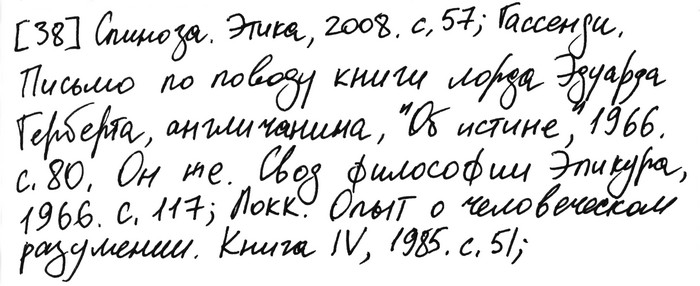 [38] Спиноза. Этика, 2008. с. 57; Гассенди.
Письмо по поводу книги лорда Эдуарда
Герберта, англичанина, "Об истине", 1966.
с. 80. Он же. Свод философии Эпикура,
1966. с. 117; Локк. Опыт о человеческом
разумении. Книга IV, 1985. с. 51;